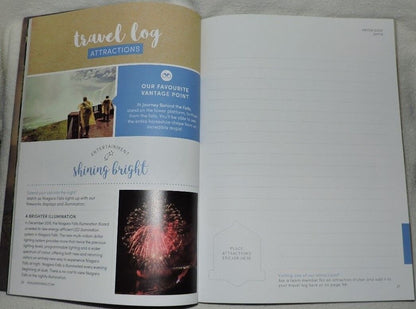 travel log
ATTRACTIONS
OUR FAVOURITE
VANTAGE POINT
At Journey Behind the Falls,
stand on the lower platform,
from the Falls. You'll be able to see
the entire horseshoe shape from an
incredible angle!
ENTERTAINMENT
shining bright
Spend your visit into the night!
Watch as Niagara Falls lights up with our
fireworks displays and illumination.
A BRIGHTER ILLUMINATION
In December 2016, the Niagara Falls Illumination Board
unveiled its new energy-efficient LED illumination
system in Niagara Falls. The new multi-million dollar
lighting system provides more than twice the previous
lighting levels, programmable lighting and a wider
spectrum of colour, offering both new and returning
visitors an entirely new way to experience Niagara
Falls at night. Niagara Falls is illuminated every evening
beginning at dusk. There is no cost to view Niagara
Falls at the nightly illumination.
PLACE
ATTRACTIONS
STICKER HERE
Visiting one of our attractions?
Ask a team member for an attraction sticker and add it to
your travel log here or on page